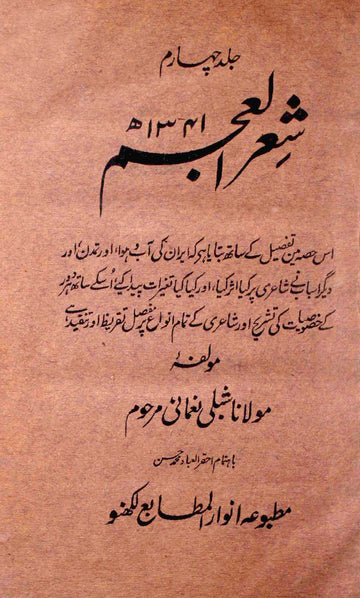 جلد چہارم
شعر العجم
۱۳۴۱ھ
اس حصہ مین تفصیل کے ساتھ بتایا ہی کہ ایران کی آب و ہوا، اور تمدن اور
دیگر اسباب نے شاعری پر کیا اثر کیا، اور کیا کیا تغیرات پیدا کیے، اُسکے ساتھ ہر دور
کے خصوصیات کی تشریح اور شاعری کے تمام انواع پر مفصل تقریظ اور تنقید ہے
مولفۂ
مولانا شبلی نعمانی مرحوم
باہتمام احقر العباد محمد حسن
مطبوعہ انوار المطابع لکھنو